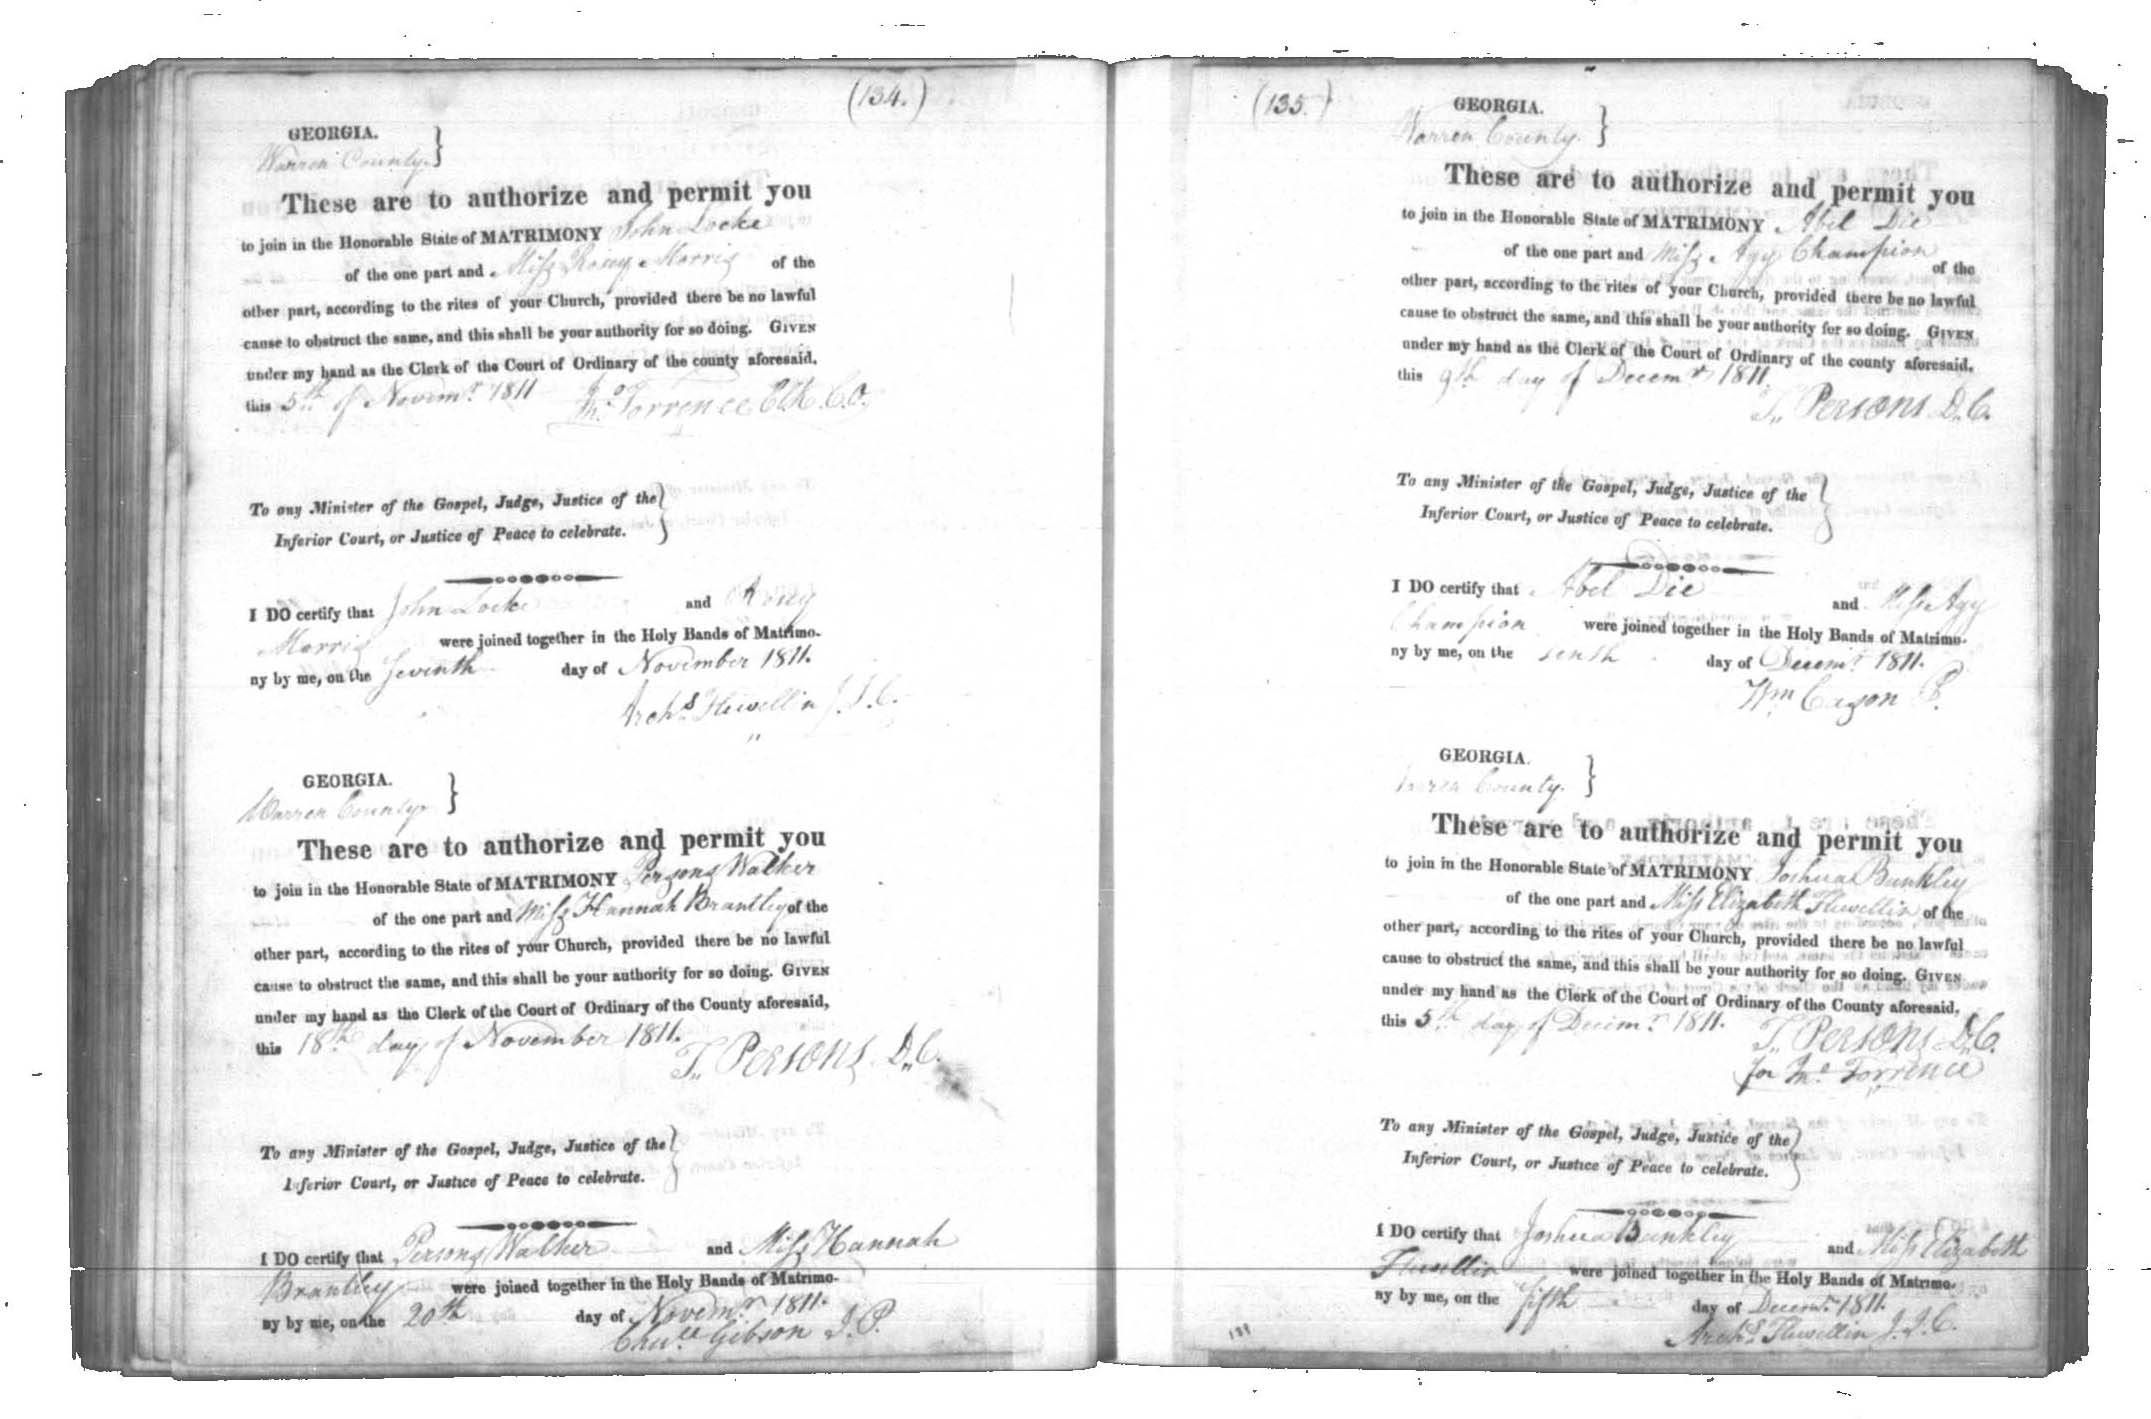 (134.)
GEORGIA.
Warren County. }
These are to authorize and permit you
to join in the Honorable State of MATRIMONY John Locke
of the one part and Miss Rosey Morris of the
other part, according to the rites of your Church, provided there be no lawful
cause to obstruct the same, and this shall be your authority for so doing. GIVEN
under my hand as the Clerk of the Court of Ordinary of the county aforesaid,
this 5th of Novemr. 1811 Jno. Torrence Clk. C.O.
To any Minister of the Gospel, Judge, Justice of the }
Inferior Court, or Justice of Peace to celebrate.
I DO certify that John Locke and
Morris were joined together in the Holy Bands of Matrimo-
ny by me, on the Seventh day of November 1811.
Archs. Flewellin J.I.C.
GEORGIA.
Warren County }
These are to authorize and permit you
to join in the Honorable State of MATRIMONY Persons Walker
of the one part and Miss Hannah Brantley of the
other part, according to the rites of your Church, provided there be no lawful
cause to obstruct the same, and this shall be your authority for so doing. GIVEN
under my hand as the Clerk of the Court of Ordinary of the County aforesaid,
this 18th day of November 1811.
T,, PERSONS D,,C.
To any Minister of the Gospel, Judge, Justice of the }
Inferior Court, or Justice of Peace to celebrate.
I DO certify that Persons Walker and Miss Hannah
Brantley were joined together in the Holy Bands of Matrimo-
ny by me, on the 20th day of Novemr. 1811.
Gibson J.P.
(135.)
GEORGIA.
Warren County. }
These are to authorize and permit you
to join in the Honorable State of MATRIMONY Abel Die
of the one part and Miss Agy Champion of the
other part, according to the rites of your Church, provided there be no lawful
cause to obstruct the same, and this shall be your authority for so doing. GIVEN
under my hand as the Clerk of the Court of Ordinary of the county aforesaid,
this 9th day of Decemr. 1811.
T,, PERSONS D,,C.
To any Minister of the Gospel, Judge, Justice of the }
Inferior Court, or Justice of Peace to celebrate.
I DO certify that Abel Die and Miss Agy
Champion were joined together in the Holy Bands of Matrimo-
ny by me, on the tenth day of Decemr. 1811.
Wm Cason
GEORGIA.
Warren County. }
These are to authorize and permit you
to join in the Honorable State of MATRIMONY Joshua Bunkley
of the one part and Miss Elizabeth Flewellin of the
other part, according to the rites of your Church, provided there be no lawful
cause to obstruct the same, and this shall be your authority for so doing. GIVEN
under my hand as the Clerk of the Court of Ordinary of the County aforesaid,
this 5th day of Decemr. 1811.
T,, PERSONS D,,C.
for Jno. Torrence
To any Minister of the Gospel, Judge, Justice of the }
Inferior Court, or Justice of Peace to celebrate.
I DO certify that Joshua Bunkley and Miss Elizabeth
Flewellin were joined together in the Holy Bands of Matrimo-
ny by me, on the fifth day of Decemr. 1811.
Archs. Flewellin J.I.C.